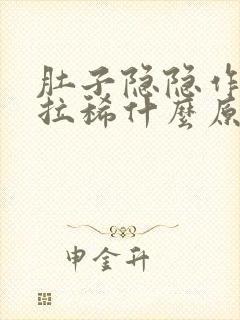 肚子隐隐作
拉稀什麼原
申金升